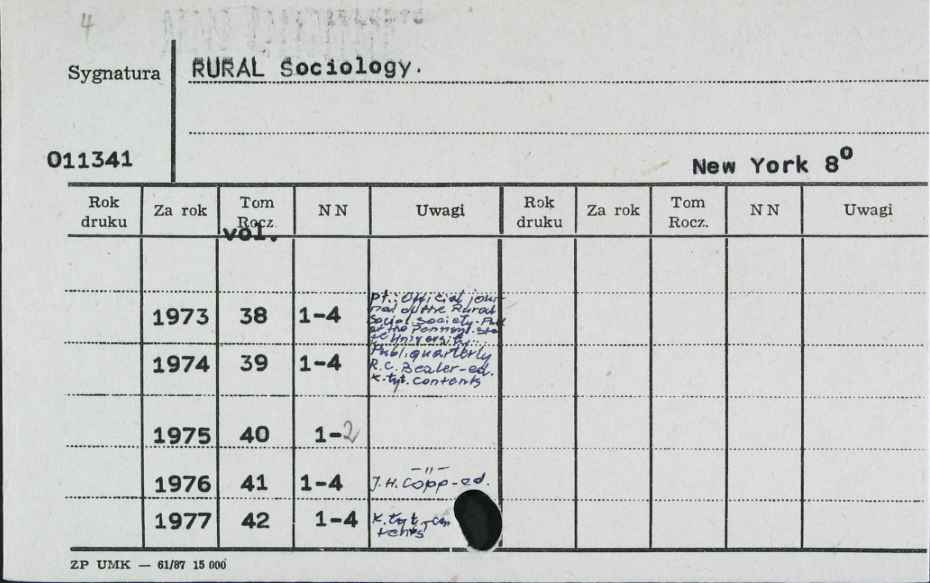 4
Sygnatura RURAL Sociology.
011341 New York 8°
Rok druku Za rok Tom Rocz. NN Uwagi Rok druku Za rok Tom Rocz. NN Uwagi
vol.
1973 38 1-4 pt.: Official jour
nal of the Rural
Social. Society. Publ
at the Pennsyl. Sta
te University.
1974 39 1-4 Publ. quarterly
R.C. Bealer-ed.
k.tyt. contents
1975 40 1-2
1976 41 1-4 –"–
J.H. Copp-ed.
1977 42 1-4 k.tyt.-con
tents
ZP UMK — 61/87 15 000